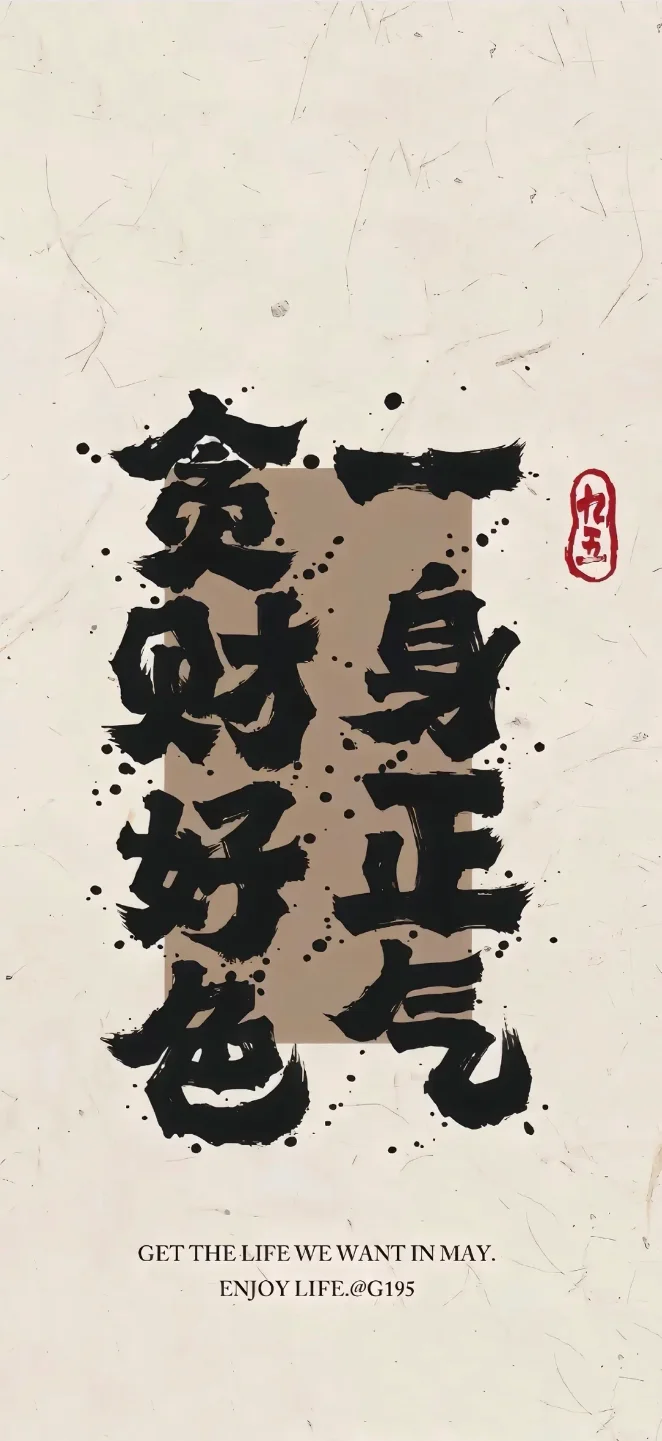 一身正气
贪财好色
九五
GET THE LIFE WE WANT IN MAY.
ENJOY LIFE.@G195